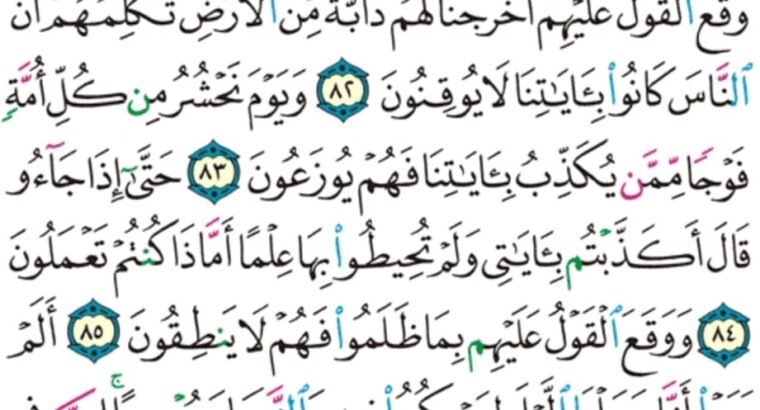 وَقَعَ ٱلْقَوْلُ عَلَيْهِمْ أَخْرَجْنَا لَهُمْ دَآبَّةً مِّنَ ٱلْأَرْضِ تُكَلِّمُهُمْ أَنَّ
ٱلنَّاسَ كَانُوا۟ بِـَٔايَـٰتِنَا لَا يُوقِنُونَ ٨٢ وَيَوْمَ نَحْشُرُ مِن كُلِّ أُمَّةٍ
فَوْجًا مِّمَّن يُكَذِّبُ بِـَٔايَـٰتِنَا فَهُمْ يُوزَعُونَ ٨٣ حَتَّىٰٓ إِذَا جَآءُو
قَالَ أَكَذَّبْتُم بِـَٔايَـٰتِى وَلَمْ تُحِيطُوا۟ بِهَا عِلْمًا أَمَّاذَا كُنتُمْ تَعْمَلُونَ
٨٤ وَوَقَعَ ٱلْقَوْلُ عَلَيْهِم بِمَا ظَلَمُوا۟ فَهُمْ لَا يَنطِقُونَ ٨٥ أَلَمْ